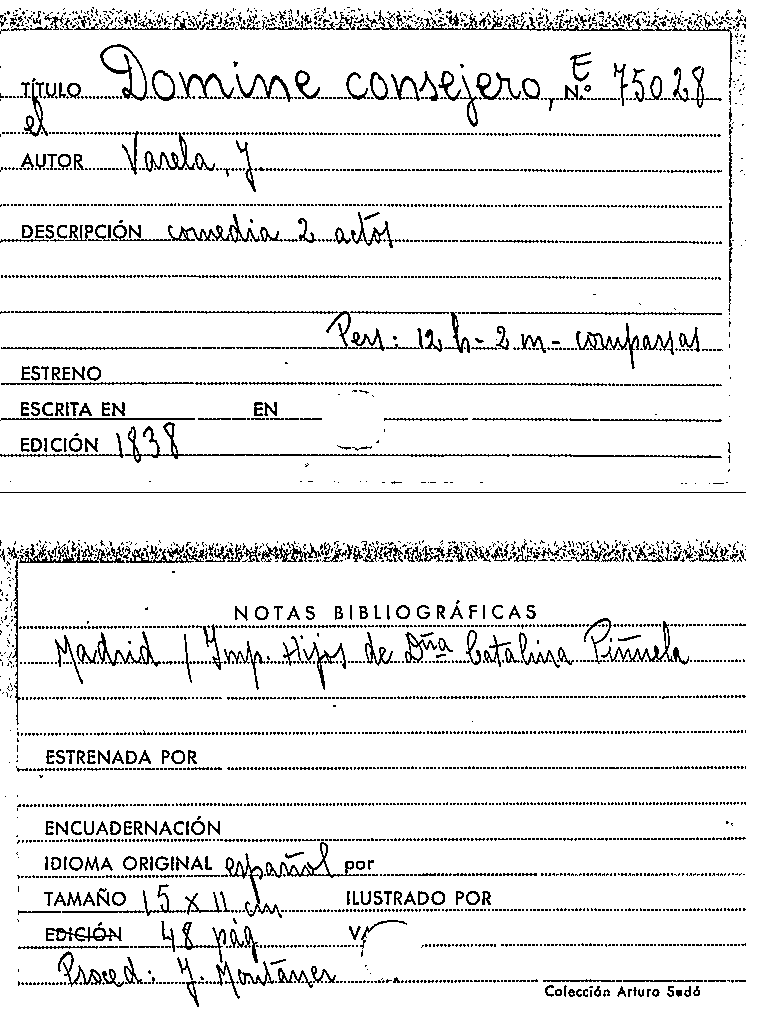 TÍTULO Domine consejero, E N.º 75028
el
AUTOR Varela, J.
DESCRIPCIÓN comedia 2 actos
Pers: 12 h - 2 m - comparsas
ESTRENO
ESCRITA EN EN
EDICIÓN 1838
NOTAS BIBLIOGRÁFICAS
Madrid / Imp. Hijos de Dña Catalina Piñuela
ESTRENADA POR
ENCUADERNACIÓN
IDIOMA ORIGINAL español por
TAMAÑO 15 x 11 cm ILUSTRADO POR
EDICIÓN 48 pág
Proced: J. Montaner
Colección Arturo Sedó